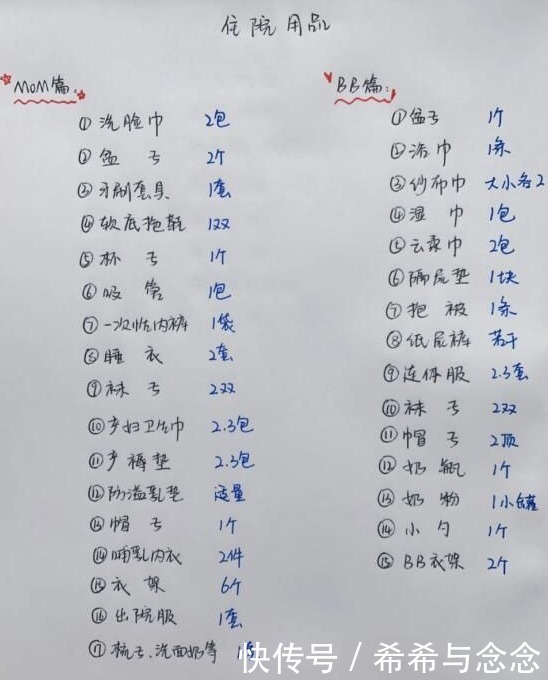 住院用品
MOM篇:
①洗脸巾 2包
②盆子 2个
③牙刷套具 1套
④软底拖鞋 1双
⑤杯子 1个
⑥吸管 1包
⑦一次性内裤 1袋
⑧睡衣 2套
⑨袜子 2双
⑩产妇卫生巾 2.3包
⑪产褥垫 2.3包
⑫防溢乳垫 适量
⑬帽子 1个
⑭哺乳内衣 2件
⑮衣架 6个
⑯出院服 1套
⑰梳子、洗面奶等
BB篇:
①盆子 1个
②浴巾 1条
③纱布巾 大小各2
④湿巾 1包
⑤云柔巾 2包
⑥隔尿垫 1块
⑦抱被 1条
⑧纸尿裤 若干
⑨连体服 2.3套
⑩袜子 2双
⑪帽子 2顶
⑫奶瓶 1个
⑬奶粉 1小罐
⑭小勺 1个
⑮BB衣架 2个
快传号/希希与念念